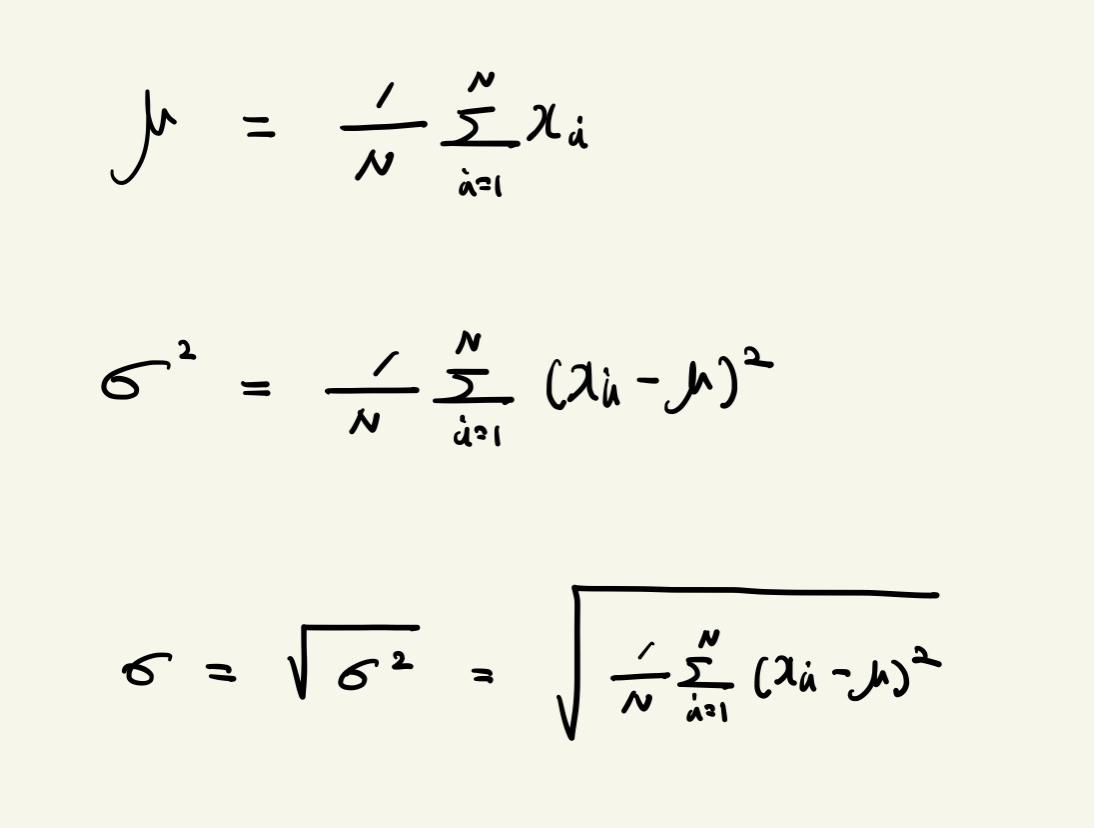 μ = 1/N ∑_{i=1}^{N} x_i
σ² = 1/N ∑_{i=1}^{N} (x_i - μ)²
σ = √(σ²) = √(1/N ∑_{i=1}^{N} (x_i - μ)²)